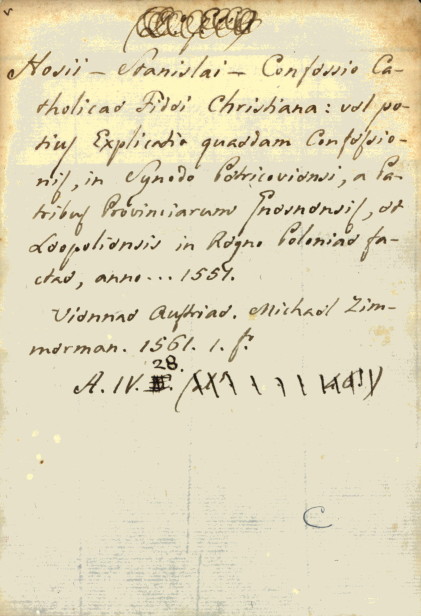 Hosii – Stanislai – Confessio Ca-
tholicae Fidei Christiana: vel po-
tius Explicatio quaedam Confessio-
nis, in Synodo Petricoviensi, a Pa-
tribus Provinciarum Gnesnensis, et
Leopoliensis in Regno Poloniae fa-
ctae, anno... 1551.
Viennae Austriae. Michael Zim-
merman. 1561. 1. f.
28.
A. IV.
C